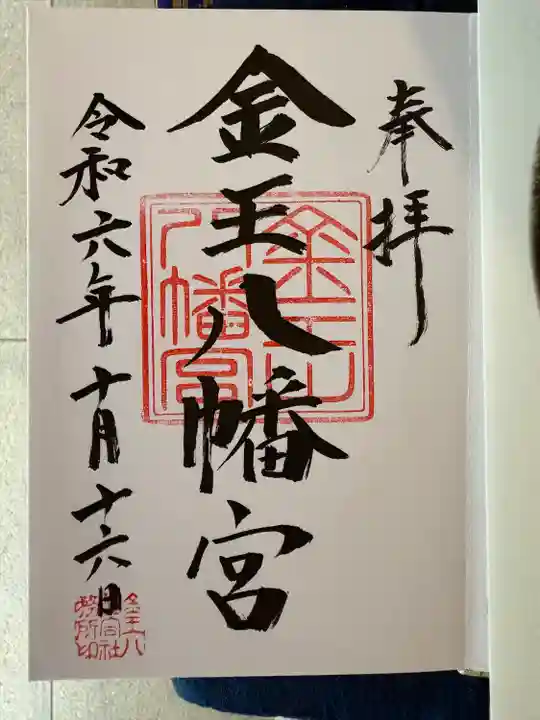 奉拝
金王八幡宮
令和六年十月十六日
金王
八幡宮
金王八
幡宮社
務所印